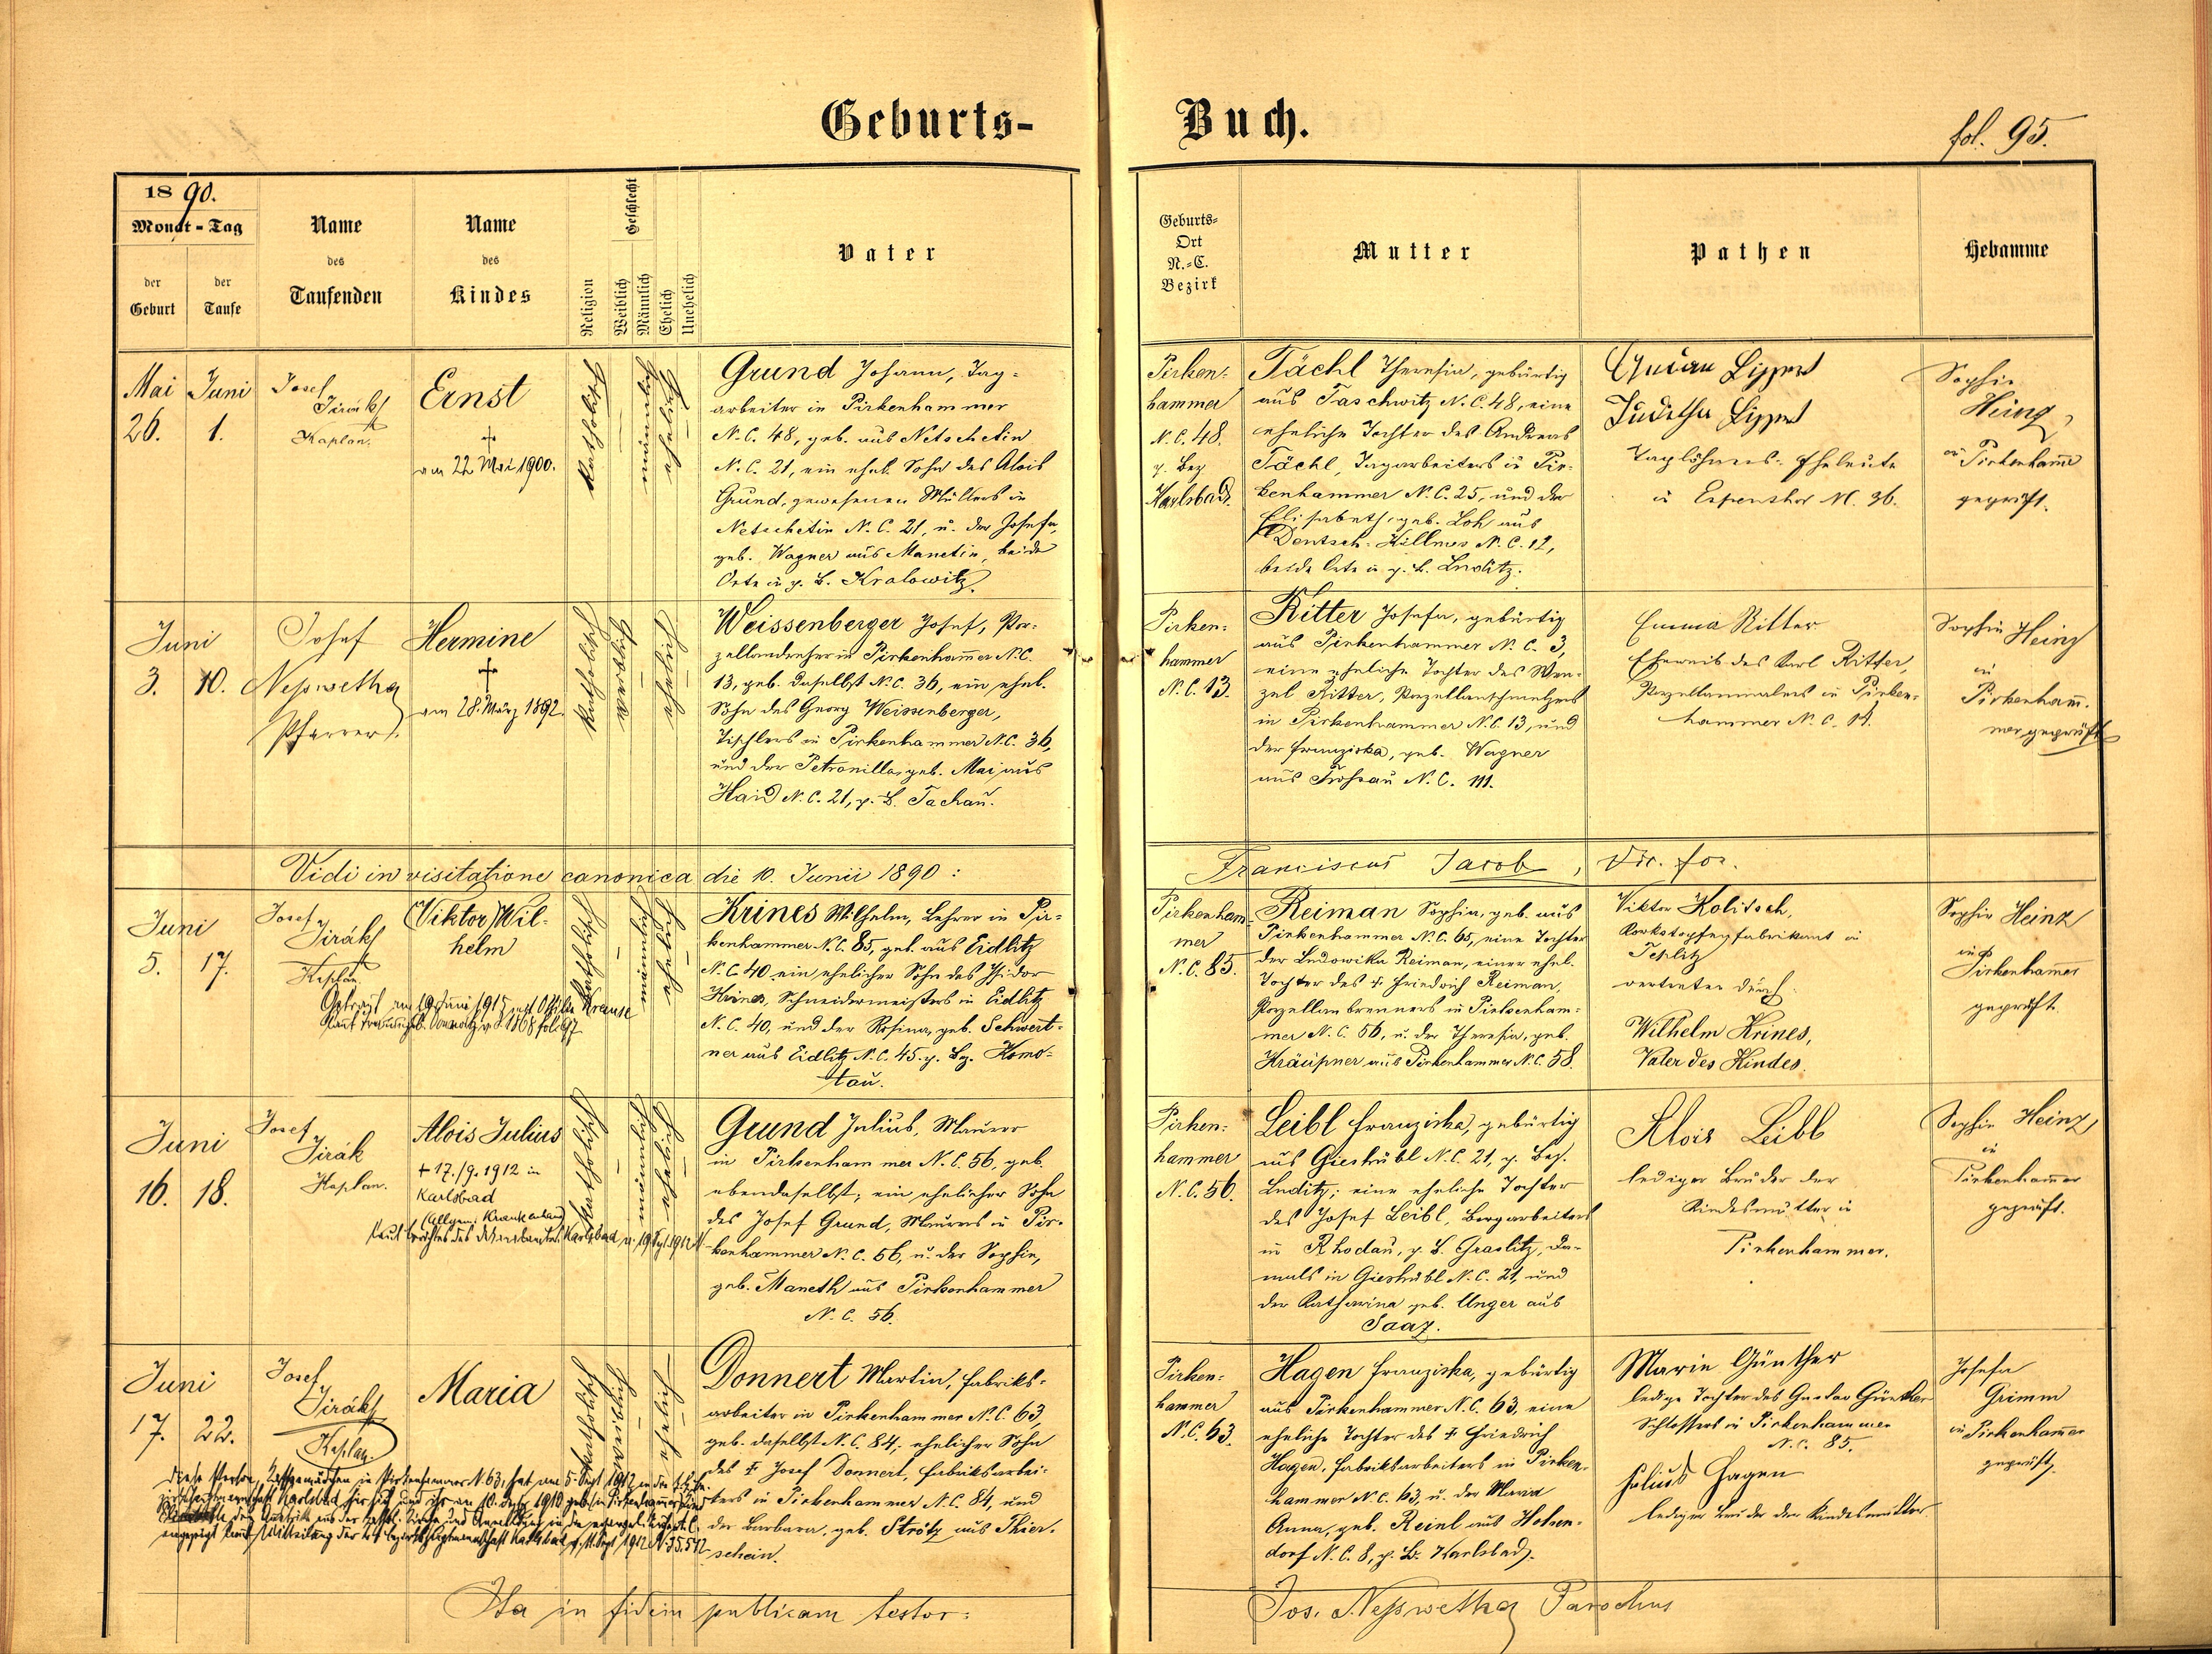 Geburts-
Buch.
fol. 95.
1890.
Monat - Tag
der Geburt
der Taufe
Name des Taufenden
Name des Kindes
Religion
Geschlecht
Weiblich
Männlich
Ehelich
Unehelich
Vater
Geburts-
Ort
N.-C.
Bezirk
Mutter
Pathen
Hebamme
Mai 26.
Juni 1.
Josef
Jirák
Kaplan.
Ernst
†
am 22 Mai 1900.
katholisch
männlich
ehelich
Grund Johann, Tag-
arbeiter in Pirkenhammer
N.C. 48, geb. aus Netschetin
N.C. 21, ein ehel. Sohn des Alois
Grund, gewesenen Müllers in
Netschetin N.C. 21, u. der Josefa,
geb. Wagner aus Manetin, beide
Orte in p. B. Kralowitz.
Pirken-
hammer
N.C. 48.
p. Bez
Karlsbad.
Tächl Theresia, gebürtig
aus Taschwitz N.C. 48, eine
eheliche Tochter des Andreas
Tächl, Tagarbeiters in Pir-
kenhammer N.C. 25, und der
Elisabeth, geb. Loh aus
Deutsch-Killmes N.C. 12,
beide Orte in p. B. Luditz.
Lippert
Juditha Lippert
Taglöhners-Eheleute
in Espenthor N. 36.
Sophie
Heinz,
in Pirkenhamer
geprüft.
Juni
3. 10.
Josef
Nesswetha
Pfarrer.
Hermine
†
am 28. März 1892.
katholisch
weiblich
ehelich
Weissenberger Josef, Por-
zellandreher in Pirkenhamer N.C.
13, geb. daselbst N.C. 36, ein ehel.
Sohn des Georg Weissenberger,
Tischlers in Pirkenhammer N.C. 36,
und der Petronilla, geb. Mai aus
Haid N.C. 21, p. B. Tachau.
Pirken-
hammer
N.C. 13.
Ritter Josefa, gebürtig
aus Pirkenhammer N.C. 3,
eine eheliche Tochter des Wen-
zel Ritter, Porzellanschmelzers
in Pirkenhammer N.C. 13, und
der Franziska, geb. Wagner
aus N.C. 111.
Emma Ritter
Eheweib des Karl Ritter,
Porzellanmalers in Pirken-
hammer N.C.
Sophie Heinz
in
Pirkenham-
mer geprüft
Vidi in visitatione canonica die 10. Junii 1890:
Franciscus Jacob, Vic. for.
Juni
5. 17.
Josef
Jirák
Kaplan.
(Viktor) Wil-
helm
Getraut am 19. Juni 1915 mit Othilia Krause
katholisch
männlich
ehelich
Krines Wilhelm, Lehrer in Pir-
kenhammer N.C. 85, geb. aus Eidlitz
N.C. 40 ein ehelicher Sohn des Isidor
Krines, Schneidermeisters in Eidlitz
N.C. 40, und der Rosina, geb. Schweit-
ner aus Eidlitz N.C. 45. p. Bz. Komo-
tau.
Pirkenham-
mer
N.C. 85.
Reiman Sophie, geb. aus
Pirkenhammer N.C. 65, eine Tochter
der Ludowika Reiman, einer ehel.
Tochter des † Friedrich Reiman,
Porzellanbrenners in Pirkenham-
mer N.C. 56, u. der Theresia, geb.
Kräupner aus Pirkenhammer N.C. 58.
Viktor Kolitsch,
Korkstopfenfabrikant in
Teplitz
vertreten durch:
Wilhelm Krines,
Vater des Kindes.
Sophie Heinz
in
Pirkenhamer
geprüft.
Juni
16. 18.
Josef
Jirák
Kaplan.
Alois Julius
† 17./9. 1912 in
Karlsbad
(Allgem. Krankenhaus)
katholisch
männlich
ehelich
Grund Julius, Maurer
in Pirkenhammer N.C. 56, geb.
ebendaselbst; ein ehelicher Sohn
des Josef Grund, Maurers in Pir-
kenhammer N.C. 56, u. der Sophie,
geb. Maneth aus Pirkenhammer
N.C. 56.
Pirken-
hammer
N.C. 56.
Leibl Franziska, gebürtig
aus Gieshübl N.C. 21, p. Bez.
Luditz; eine eheliche Tochter
des Josef Leibl, Bergarbeiters
in Rhodau, p. B. Graslitz, da-
mals in Gieshübl N.C. 21, und
der Katharina geb. Unger aus
Saaz.
Alois Leibl
lediger Bruder der
Kindesmutter in
Pirkenhammer.
Sophie Heinz,
in
Pirkenhamer
geprüft.
Juni
17. 22.
Josef
Jirák
Kaplan
Maria
Diese Person, in Pirkenhammer N. 63, hat am 5. Sept 1912
katholisch
weiblich
ehelich
Donnert Martin, Fabriks-
arbeiter in Pirkenhammer N.C. 63,
geb. daselbst N.C. 84, ehelicher Sohn
des † Josef Donnert, Fabriksarbei-
ters in Pirkenhammer N.C. 84, und
der Barbara, geb. Strötz aus Thier-
schein.
Pirken-
hammer
N.C. 63.
Hagen Franziska, gebürtig
aus Pirkenhammer N.C. 63, eine
eheliche Tochter des † Friedrich
Hagen, Fabriksarbeiters in Pirken-
hammer N.C. 63, u. der Maria
Anna, geb. Reinl aus Hohen-
dorf N.C. 8, p. B. Karlsbad.
Marie Günther
ledige Tochter des Gustav Günther
Schlossers in Pirkenhammer
N.C. 85.
Julius Hagen
lediger Bruder der Kindesmutter
Josefa
Grimm
in Pirkenhamer
geprüft.
Ita in fidem publicam testor:
Jos. Nesswetha Parochus